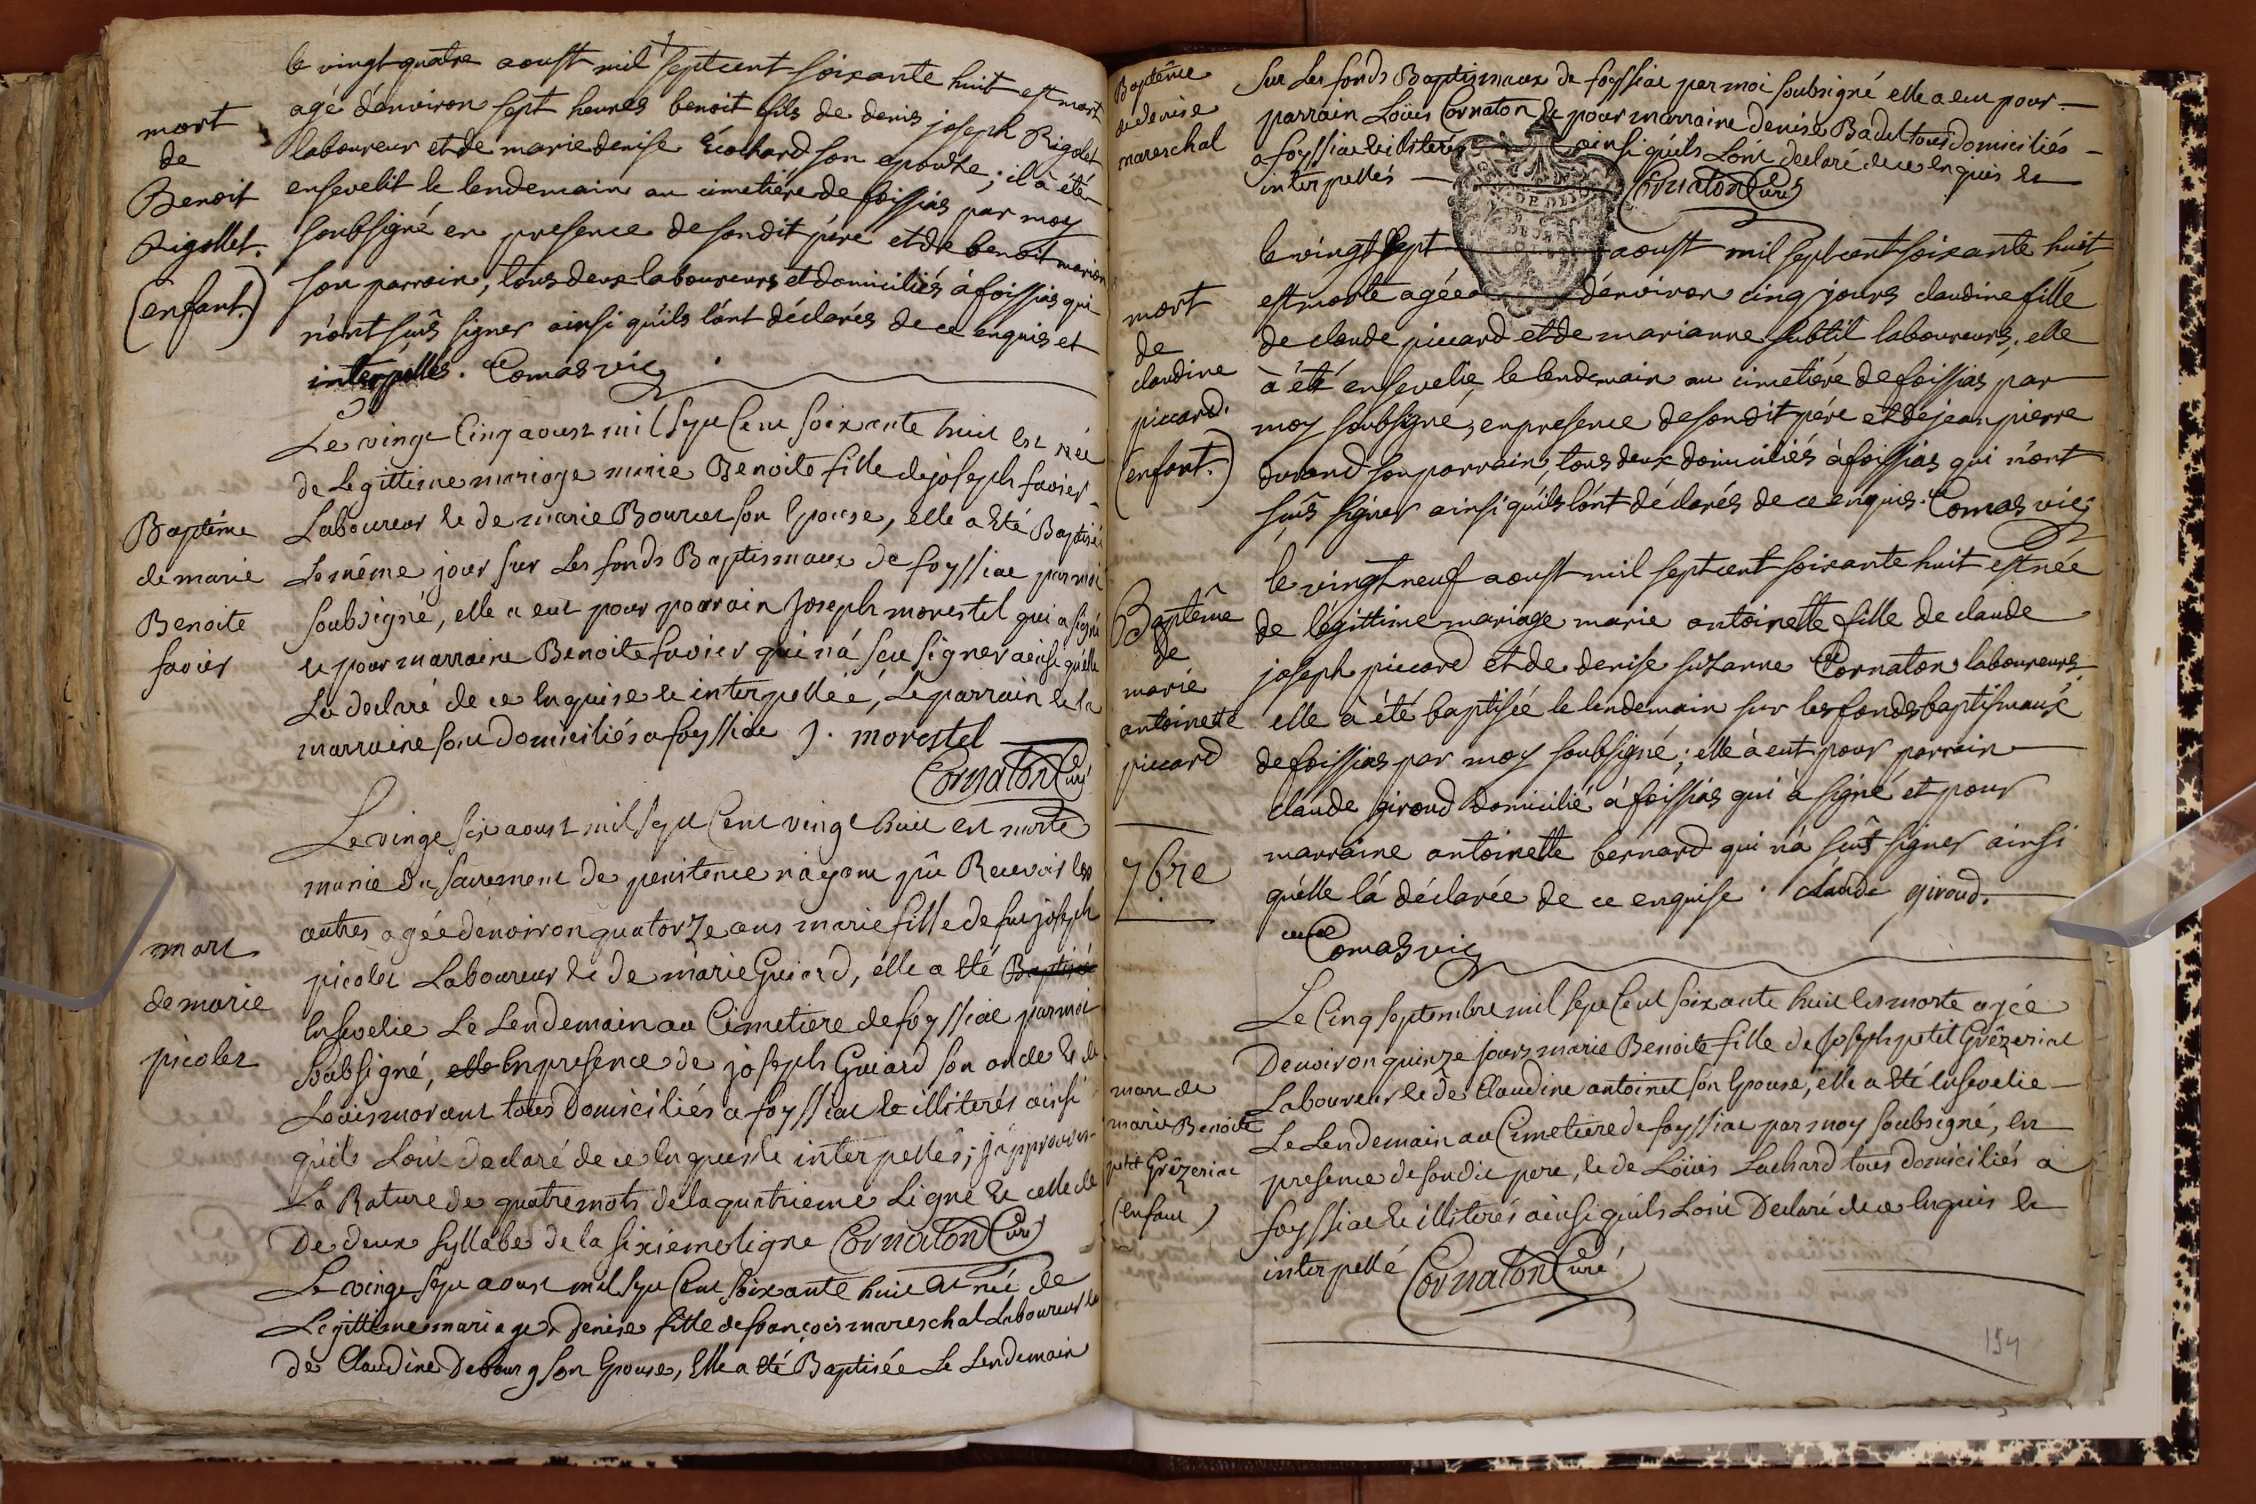 mort
de
Benoit
Rigollet.
(enfant.)
le vingt quatre aoust mil sept cent soixante huit est mort
agé d'environ sept heures benoit fils de denis joseph Rigolet
laboureur et de marie denise Ecochard son epouse; il à été
ensevelit le lendemain au cimetière de foissias par moy
soubsigné en presence de son dit père et de benoit marion
son parrain, tous deux laboureurs et domiciliés à foissias qui
n'ont sçus signer ainsi qu'ils l'ont déclarés de ce enquis et
interpellés. Comas vic
Baptéme
de marie
Benoite
favier
Le vingt Cinq aoust mil sept Cent soixante huit est née
de Legittime mariage marie Benoite fille de joseph favier
Laboureur et de marie Bourcet son Epouse, elle a Eté Baptisée
Le méme jour sur Les fonds Baptismaux de foyssiat par moi
soubsigné, elle a eut pour parrain Joseph morestel qui a signé
et pour marraine Benoite favier qui n'a sçu signer ainsi qu'elle
La declaré de ce Enquise et interpellée, Le parrain et la
marraine sont domiciliés a foyssiat J. morestel
Cornaton Curé
mort
de marie
picolet
Le vingt six aoust mil sept Cent vingt huit est morte
munie du sacrement de penitence n'ayant pû Recevoir les
autres agée d'environ quatorze ans marie fille de feu joseph
picolet Laboureur et de marie Guiard, elle a Eté Baptisée
Ensevelie Le Lendemain au Cimetiere de foyssiat par moi
Soubsigné, elle En presence de joseph Guiard son oncle et de
Loüis morant tous Domiciliés a foyssiat et illiterés ainsi
qu'ils L'ont declaré de ce Enquis et interpellés; J'approuve
La Rature de quatre mots de la quatrieme Ligne et celle de
De deux syllabe de la sixiéme ligne Cornaton Curé
Le vingt sept aoust mil sept Cent soixante huit Est née de
Legittime mariage Denise fille de françois mareschal Laboureur et
de Claudine Debourg son Epouse, Elle a Eté Baptisée Le Lendemain
Baptême
de denise
mareschal
Sur Les fonds Baptismaux de foyssiat par moi soubsigné elle a eut pour
parrain Loüis Cornaton et pour marraine denise Badel tous domiciliés
a foyssiat et illiterés ainsi qu'ils L'ont declaré de ce Enquis et
interpellés Cornaton Curé
mort
de
claudine
piccard.
(enfant.)
le vingt sept aoust mil sept cent soixante huit
est morte agée d'environ cinq jours claudine fille
de claude piccard et de marianne subtil laboureurs, elle
à été ensevelie le lendemain au cimetière de foissias par
moy soubsigné, en presence de son dit père et de jean pierre
durand son parrain, tous deux domiciliés à foissias qui n'ont
sçus signer ainsi qu'ils l'ont déclarés de ce enquis. Comas vic
Baptême
de
marie
antoinette
piccard
le vingt neuf aoust mil sept cent soixante huit est née
de légittime mariage marie antoinette fille de claude
joseph piccard et de denise suzanne Cornaton laboureurs
elle à été baptisée le lendemain sur les fonds baptismaux
de foissias par moy soubsigné; elle à eut pour parrain
claude giroud domicilié à foissias qui à signé et pour
marraine antoinette bernard qui n'à sçut signer ainsi
qu'elle l'à déclarée de ce enquise. claude giroud.
Comas vic
7bre
mort de
marie Benoite
petit Grêzeriat
(enfant)
Le Cinq septembre mil sept Cent soixante huit est morte agée
D'environ quinze jours marie Benoite fille de Joseph petit Grêzeriat
Laboureur et de Claudine antoinet son Epouse, elle a Eté Ensevelie
Le Lendemain au Cimetiere de foyssiat par moy soubsigné, En
presence de son dit pere, et de Loüis Luchard tous domiciliés a
foyssiat et illiterés ainsi qu'ils L'ont Declaré de ce Enquis et
interpellé Cornaton Curé
154